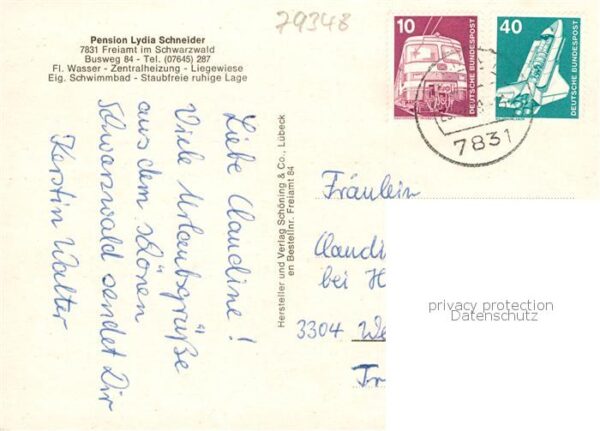 79348
Pension Lydia Schneider
7831 Freiamt im Schwarzwald
Busweg 84 - Tel. (07645) 287
Fl. Wasser - Zentralheizung - Liegewiese
Eig. Schwimmbad - Staubfreie ruhige Lage
Liebe Claudine!
Viele Urlaubsgrüße
aus dem schönen
Schwarzwald sendet Dir
Kerstin Walter
Hersteller und Verlag Schöning & Co., Lübeck
en Bestellnr. Freiamt 84
10
DEUTSCHE BUNDESPOST
40
DEUTSCHE BUNDESPOST
7831
Fräulein
Claudin
bei H
3304 We
Tr
privacy protection
Datenschutz